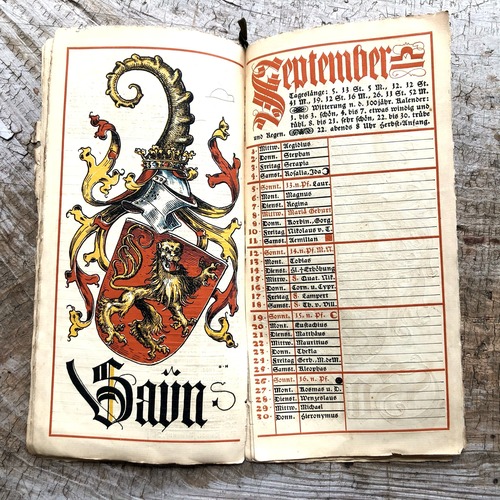 Saÿn
September
Tageslänge: 5. 13 St. 5 M., 12. 12 St.
41 M., 19. 12 St. 16 M., 26. 11 St. 52 M.
Witterung n. d. 100jähr. Kalender:
1. bis 3. schön, 4. bis 7. etwas windig und
trübt, 8. bis 21. sehr schön, 22. bis 30. trübe
und Regen. 22. abends 8 Uhr Herbst-Anfang.
1. Mittw. Aegidius
2. Donn. Stephan
3. Freitag Serapia
4. Samst. Rosalia, Ida
5. Sonnt. 13. n. Pf. Laur.
6. Mont. Magnus
7. Dienst. Regina
8. Mittw. Mariä Geburt
9. Donn. Korbin., Gorg.
10. Freitag Nikolaus v. T.
11. Samst. Aemilian
12. Sonnt. 14. n. Pf. M. N.
13. Mont. Tobias
14. Dienst. Hl. † Erhöhung
15. Mittw. 8. Quat. Nik.
16. Donn. Corn. u. Cypr.
17. Freitag 8. Lampert
18. Samst. 8. Th. v. Vill.
19. Sonnt. 15. n. Pf.
20. Mont. Eustachius
21. Dienst. Matthäus
22. Mittw. Mauritius
23. Donn. Thekla
24. Freitag Gerh., M. de M.
25. Samst. Kleophas
26. Sonnt. 16. n. Pf.
27. Mont. Kosmas u. D.
28. Dienst. Wenzeslaus
29. Mittw. Michael
30. Donn. Hieronymus